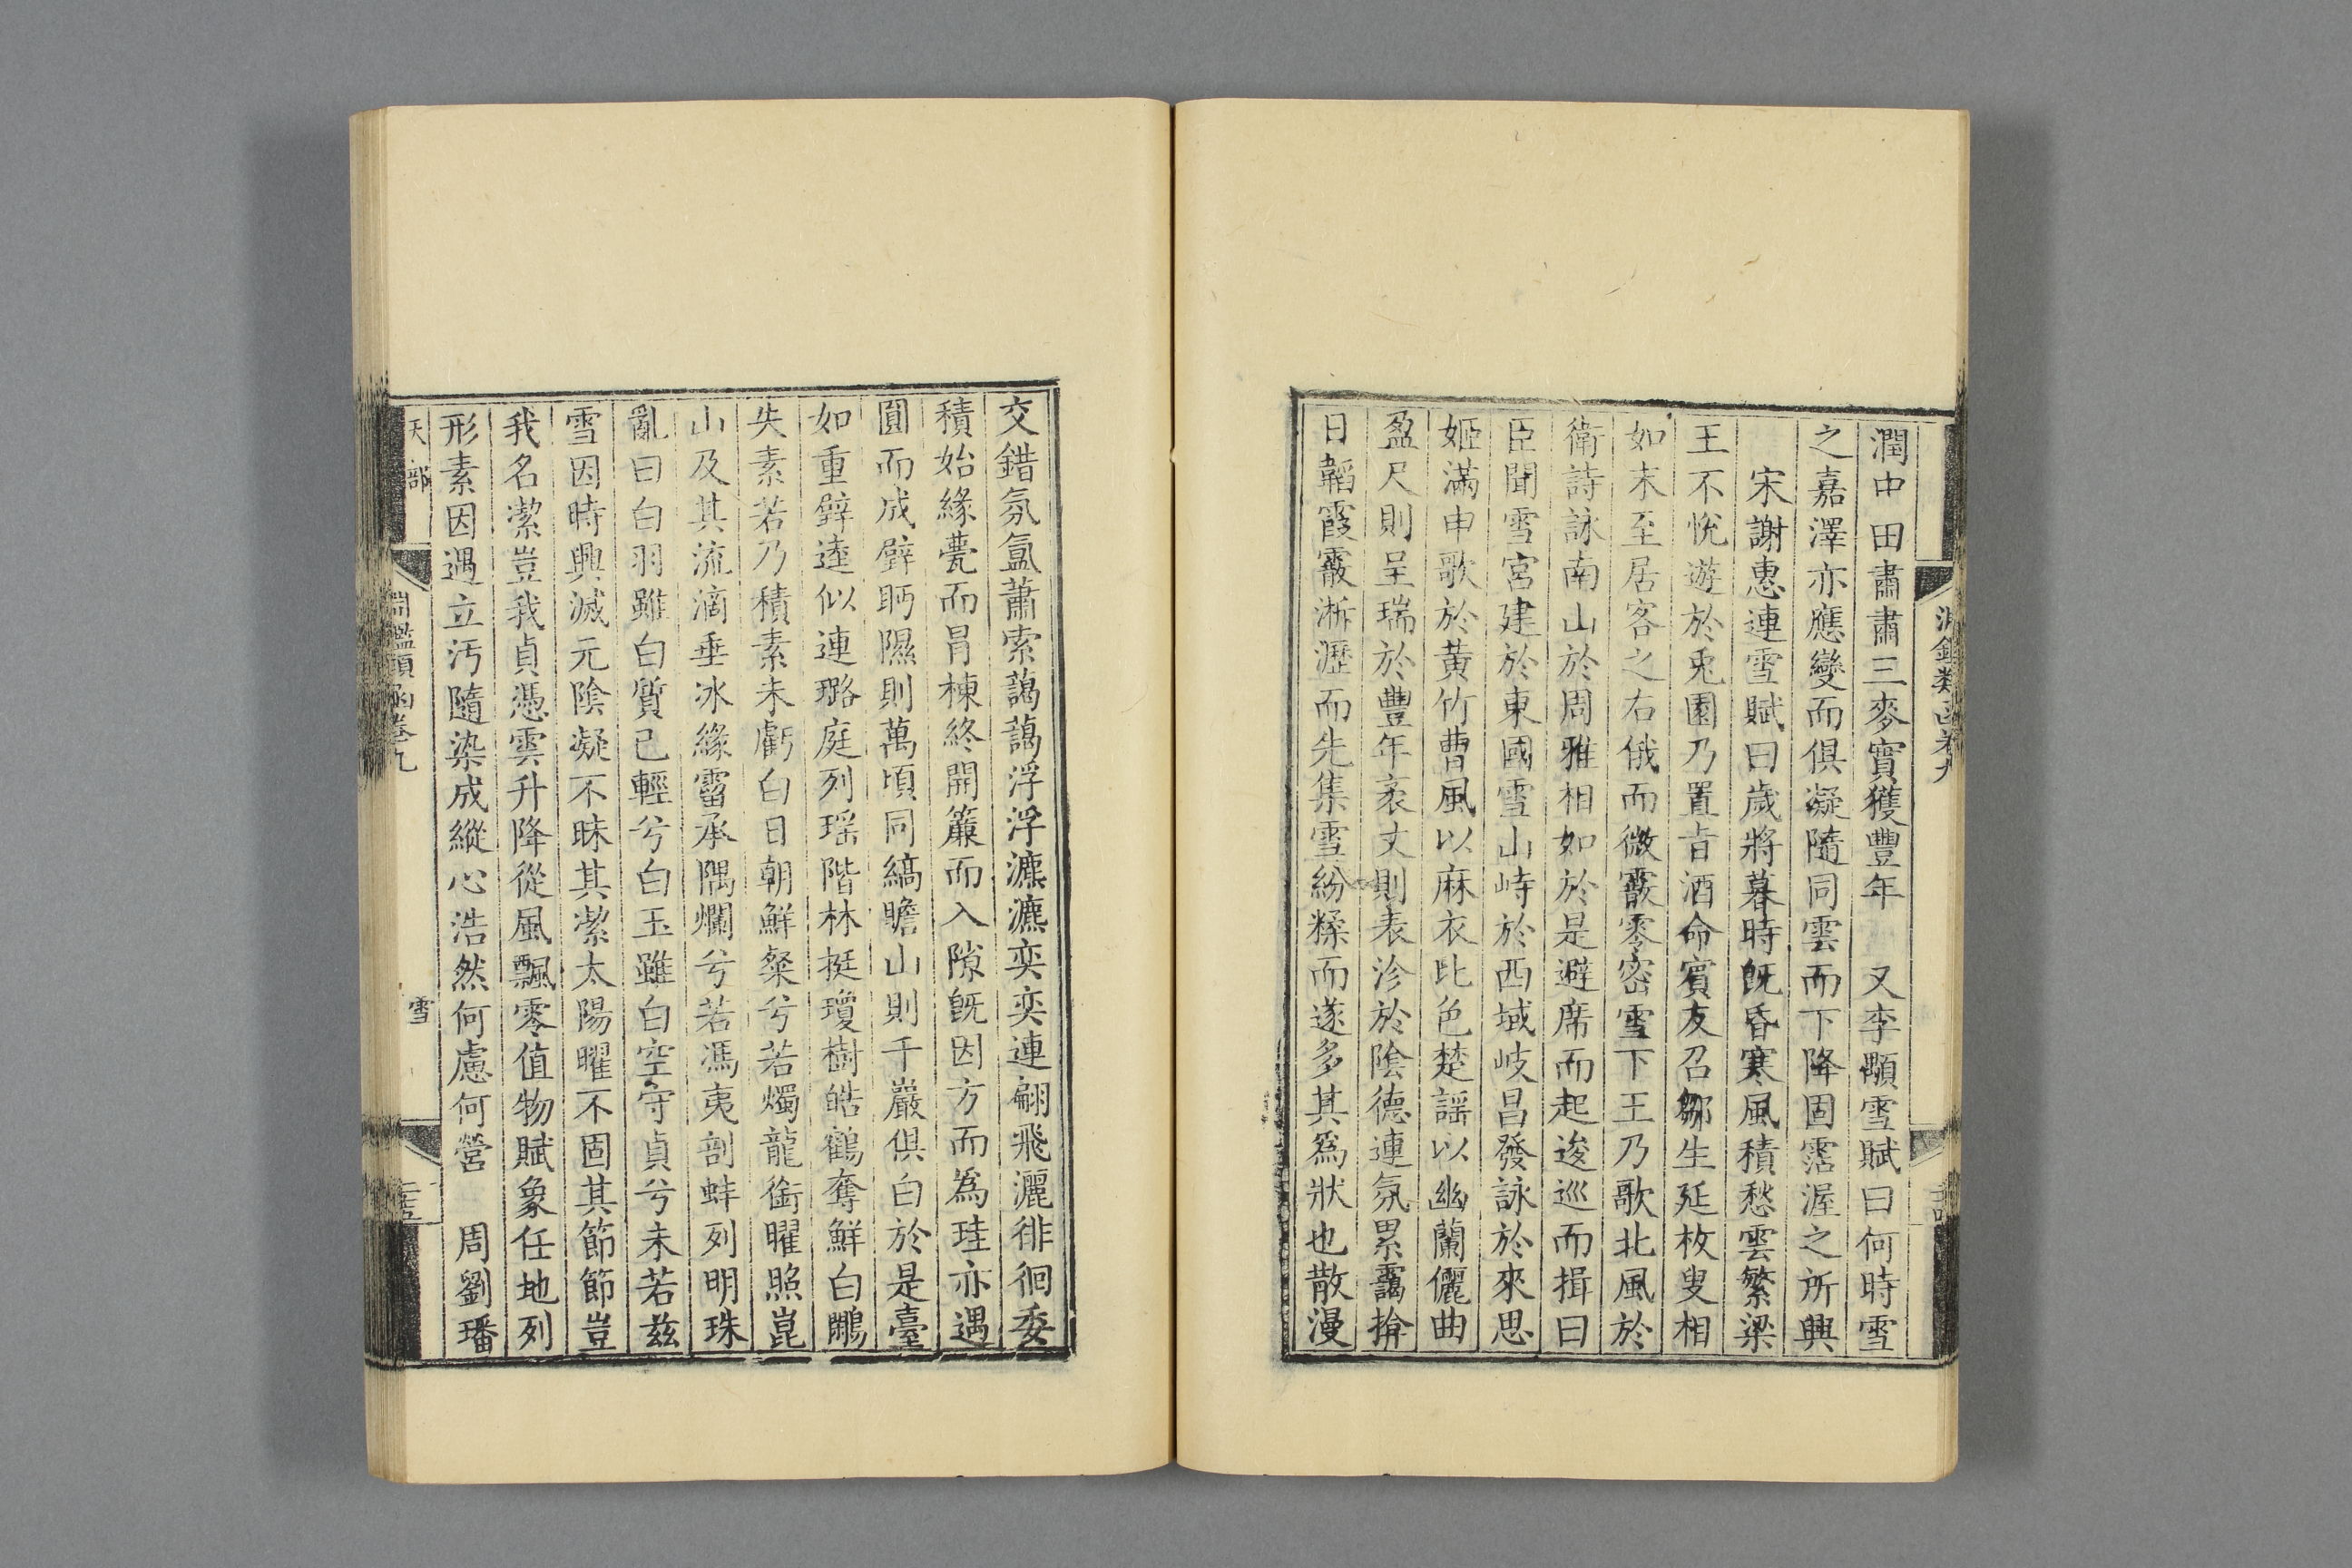 潤中田肅肅三麥實獲豐年　又李顒雪賦曰何時雪
之嘉澤亦應變而俱凝隨同雲而下降固霑渥之所興
宋謝惠連雪賦曰歲將暮時旣昏寒風積愁雲繁梁
王不悅遊於兎園乃置旨酒命賓友召鄒生延枚叟相
如末至居客之右俄而微霰零密雪下王乃歌北風於
衛詩詠南山於周雅相如於是避席而起逡巡而揖曰
臣聞雪宮建於東國雪山峙於西域岐昌發詠於來思
姬滿申歌於黃竹曹風以麻衣比色楚謡以幽蘭儷曲
盈尺則呈瑞於豐年袤丈則表沴於陰德連氛累靄揜
日韜霞霰淅瀝而先集雪紛糅而遂多其爲狀也散漫
交錯氛氳蕭索藹藹浮浮瀌瀌奕奕連翩飛灑徘徊委
積始緣甍而冐棟終開簾而入隙旣因方而爲珪亦遇
圓而成璧眄隰則萬頃同縞瞻山則千巖俱白於是臺
如重璧逵似連璐庭列瑶階林挺瓊樹皓鶴奪鮮白鷴
失素若乃積素未虧白日朝鮮粲兮若燭龍銜曜照崑
山及其流滴垂氷緣霤承隅爛兮若馮夷剖蚌列明珠
亂曰白羽雖白質已輕兮白玉雖白空守貞兮未若茲
雪因時興滅元陰凝不昧其潔太陽曜不固其節節豈
我名潔豈我貞憑雲升降從風飄零值物賦象任地列
形素因遇立汚隨染成縱心浩然何慮何營　周劉璠
天部　淵鑑類函卷九　雪　二十五